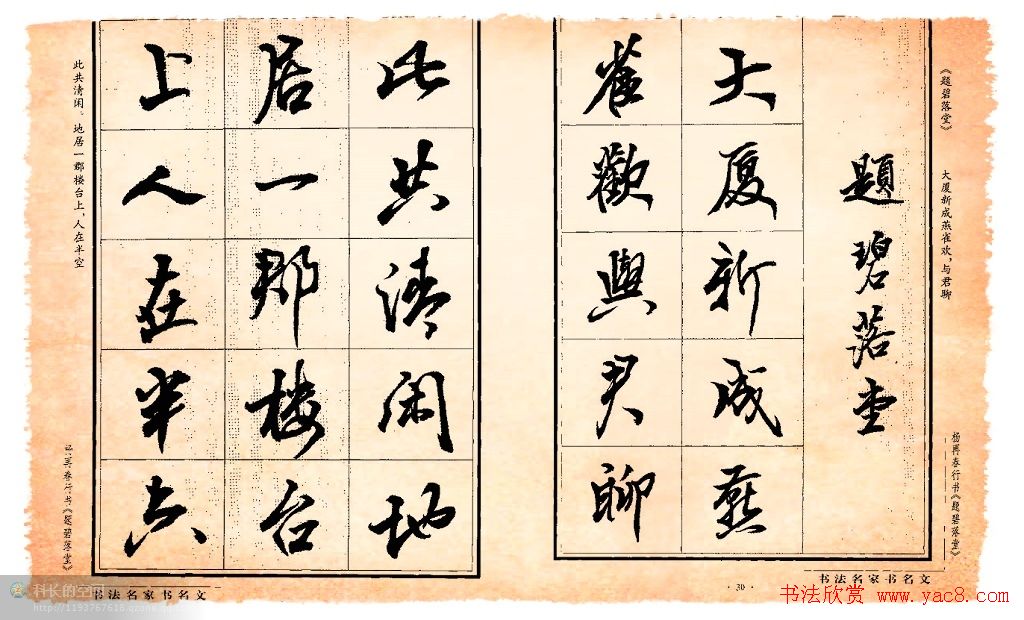 《题碧落堂》
大厦新成燕雀欢，与君聊
杨再春行书《题碧落堂》
題碧落堂
大厦新成燕
雀歡與君聊
此共清闲地
居一郡楼台
上人在半空
此共清闲。地居一郡楼台上，人在半空
杨再春行书《题碧落堂》
书法名家书名文
· 30 ·
书法名家书名文
科长的空间
书法欣赏 www.yac8.com